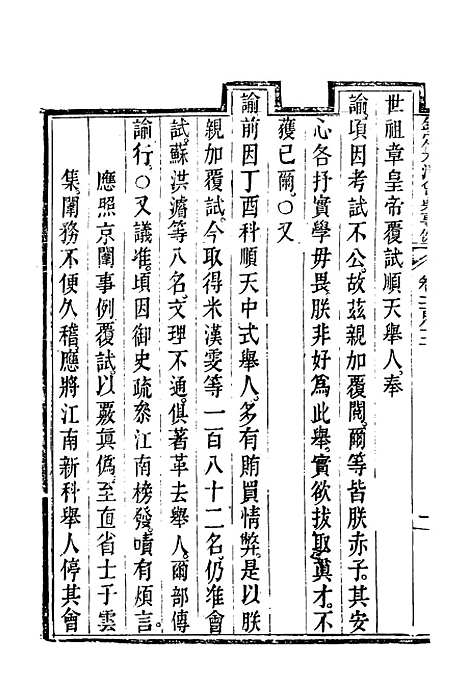 世祖章皇帝覆試順天舉人。奉
諭。頃因考試不公。故茲親加覆閱。爾等皆朕赤子。其安
心各抒實學毋畏。朕非好為此舉。實欲拔取真才。不
獲已爾。○又
諭前因丁酉科順天中式舉人。多有賄買情弊。是以朕
親加覆試。今取得米漢雯等一百八十二名。仍准會
試。蘇洪濬等八名。文理不通。俱著革去舉人。爾部傳
諭行。○又議准。頃因御史疏叅江南榜發。嘖有煩言。
應照京闈事例覆試。以覈真偽。至直省士子雲
集。闈務不便久稽。應將江南新科舉人停其會